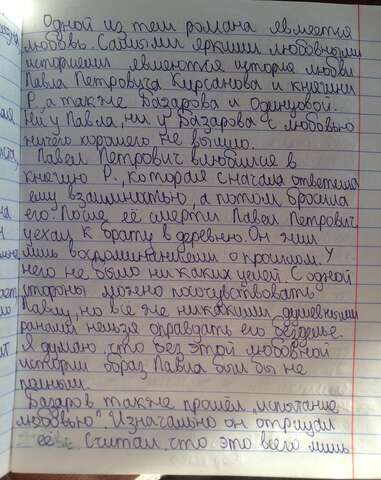 Одной из тем романа является
любовь. Самыми яркими любовными
историями являются история любви
Павла Петровича Кирсанова и княгини
Р, а также Базарова и Одинцовой.
Ни у Павла, ни у Базарова с любовью
ничего хорошего не вышло.
Павел Петрович влюбился в
княгиню Р., которая сначала ответила
ему взаимностью, а потом бросила
его. После её смерти Павел Петрович
уехал к брату в деревню. Он жил
лишь воспоминаниями о прошлом. У
него не было ни каких целей. С одной
стороны можно посочувствовать
Павлу, но всё же никакими душевными
ранами нельзя оправдать его безделье.
Я думаю, что без этой любовной
истории образ Павла был бы не
полным.
Базаров также прошёл "испытание
любовью". Изначально он отрицал
её Считал, что это всего лишь